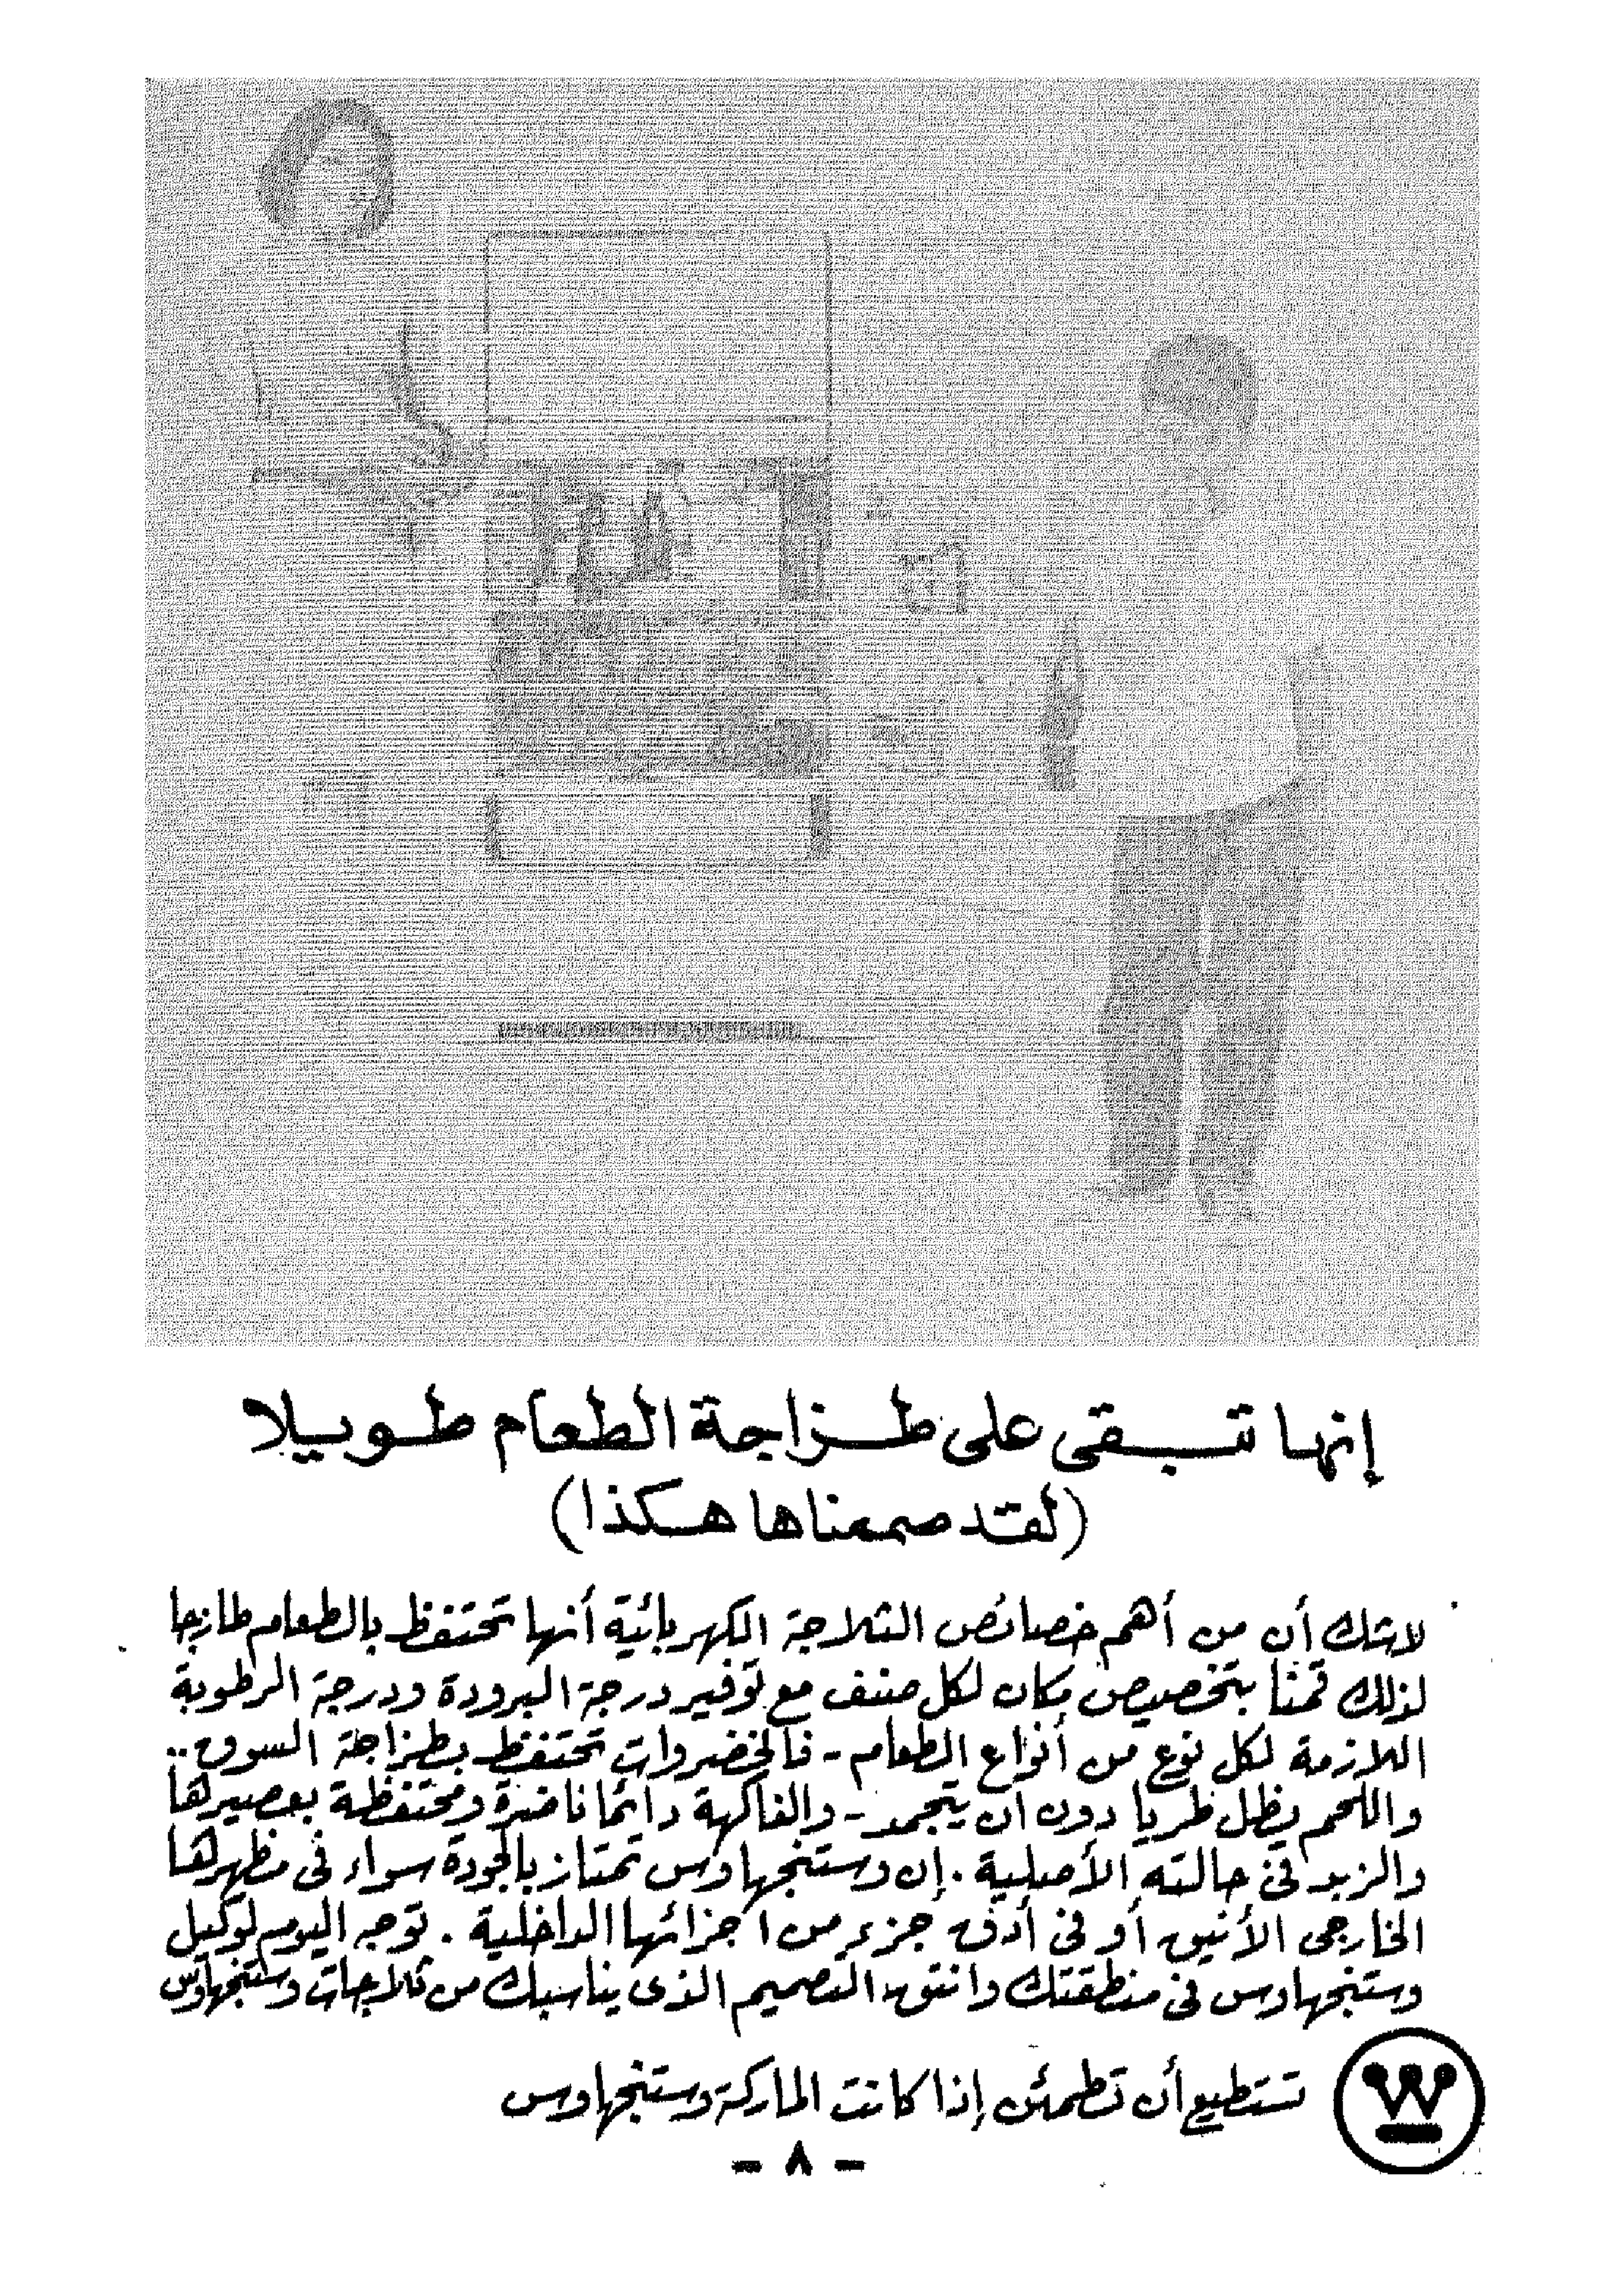 إنها تبقى على طزاجة الطعام طويلا
(لقد صممناها هكذا)
لاشك أن من أهم خصائص الثلاجة الكهربائية أنها تحتفظ بالطعام طازجا
لذلك قمنا بتخصيص مكان لكل صنف مع توفير درجة البرودة ودرجة الرطوبة
اللازمة لكل نوع من أنواع الطعام - فالخضروات تحتفظ بطزاجة السوق ..
واللحم يظل طريا دون ان يتجمد - والفاكهة دائما ناضرة ومحتفظة بعصيرها
والزبد فى حالته الأصلية . إن وستنجهاوس تمتاز بالجودة سواء فى مظهرها
الخارجى الأنيق أو فى أدق جزء من اجزائها الداخلية . توجه اليوم لوكيل
وستنجهاوس فى منطقتك وانتق التصميم الذى يناسبك من ثلاجات وستنجهاوس
تستطيع أن تطمئن إذا كانت الماركة وستنجهاوس
- ٨ -